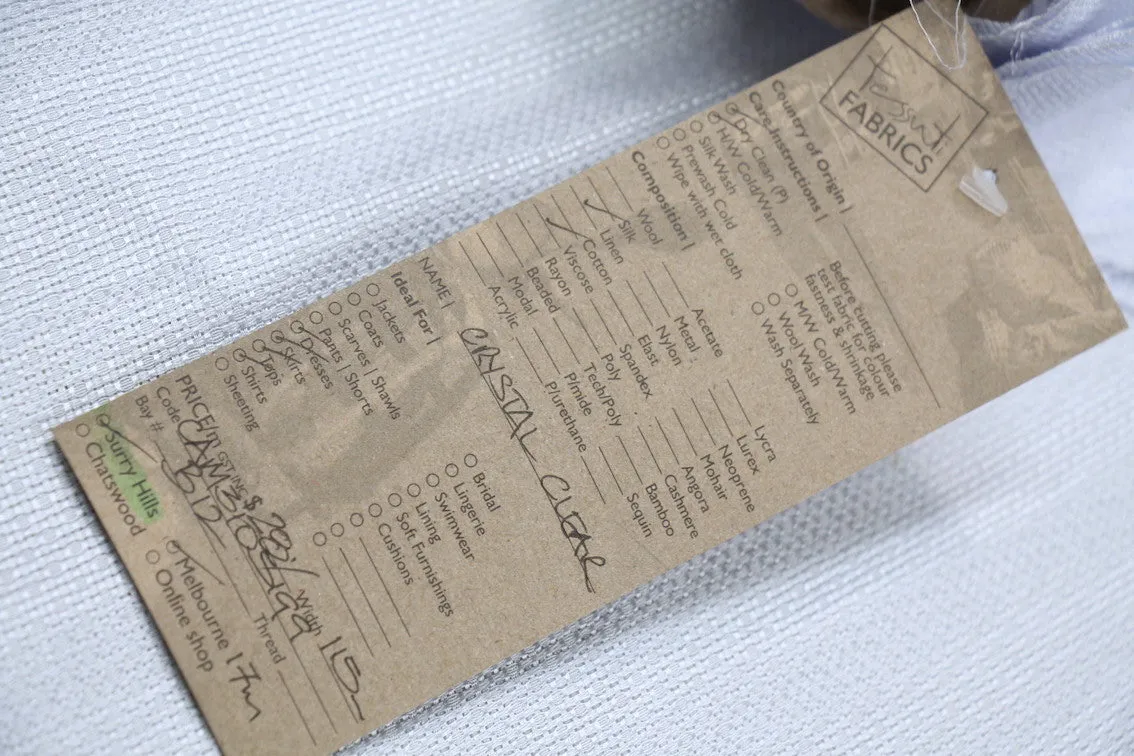 Tessuti
FABRICS
Country of Origin |
Care Instructions |
Dry Clean (P)
H/W Cold/Warm
Silk Wash
Prewash Cold
Wipe with wet cloth
Before cutting please
test fabric for colour
fastness & shrinkage
M/W Cold/Warm
Wool Wash
Wash Separately
Composition |
Wool
Silk
Linen
Cotton
Viscose
Rayon
Beaded
Modal
Acrylic
Acetate
Metal
Nylon
Elast
Spandex
Poly
Tech/Poly
P/mide
P/urethane
Lycra
Lurex
Neoprene
Mohair
Angora
Cashmere
Bamboo
Sequin
NAME | CRYSTAL CLEAR
Ideal For |
Jackets
Coats
Scarves | Shawls
Pants | Shorts
Dresses
Skirts
Tops
Shirts
Sheeting
Bridal
Lingerie
Swimwear
Lining
Soft Furnishings
Cushions
PRICE/m GST INC $ Width 115
Code
Bay # Thread
Surry Hills
Chatswood
Melbourne 17m
Online shop